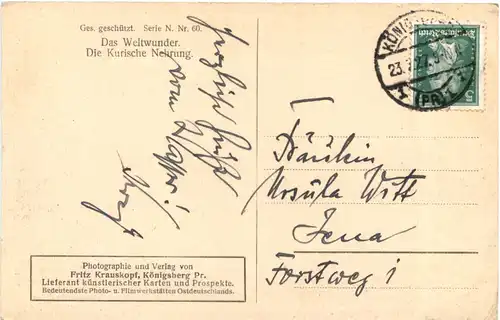 Ges. geschützt. Serie N. Nr. 60.
Das Weltwunder.
Die Kurische Nehrung.
herzliche Grüße
vom Haff!
KÖNIGSBERG
23.7.
(PR)
Deutsches Reich
5
Fräulein
Ursula Witt
Jena
Forstweg 1
Photographie und Verlag von
Fritz Krauskopf, Königsberg Pr.
Lieferant künstlerischer Karten und Prospekte.
Bedeutendste Photo- u. Filmwerkstätten Ostdeutschlands.